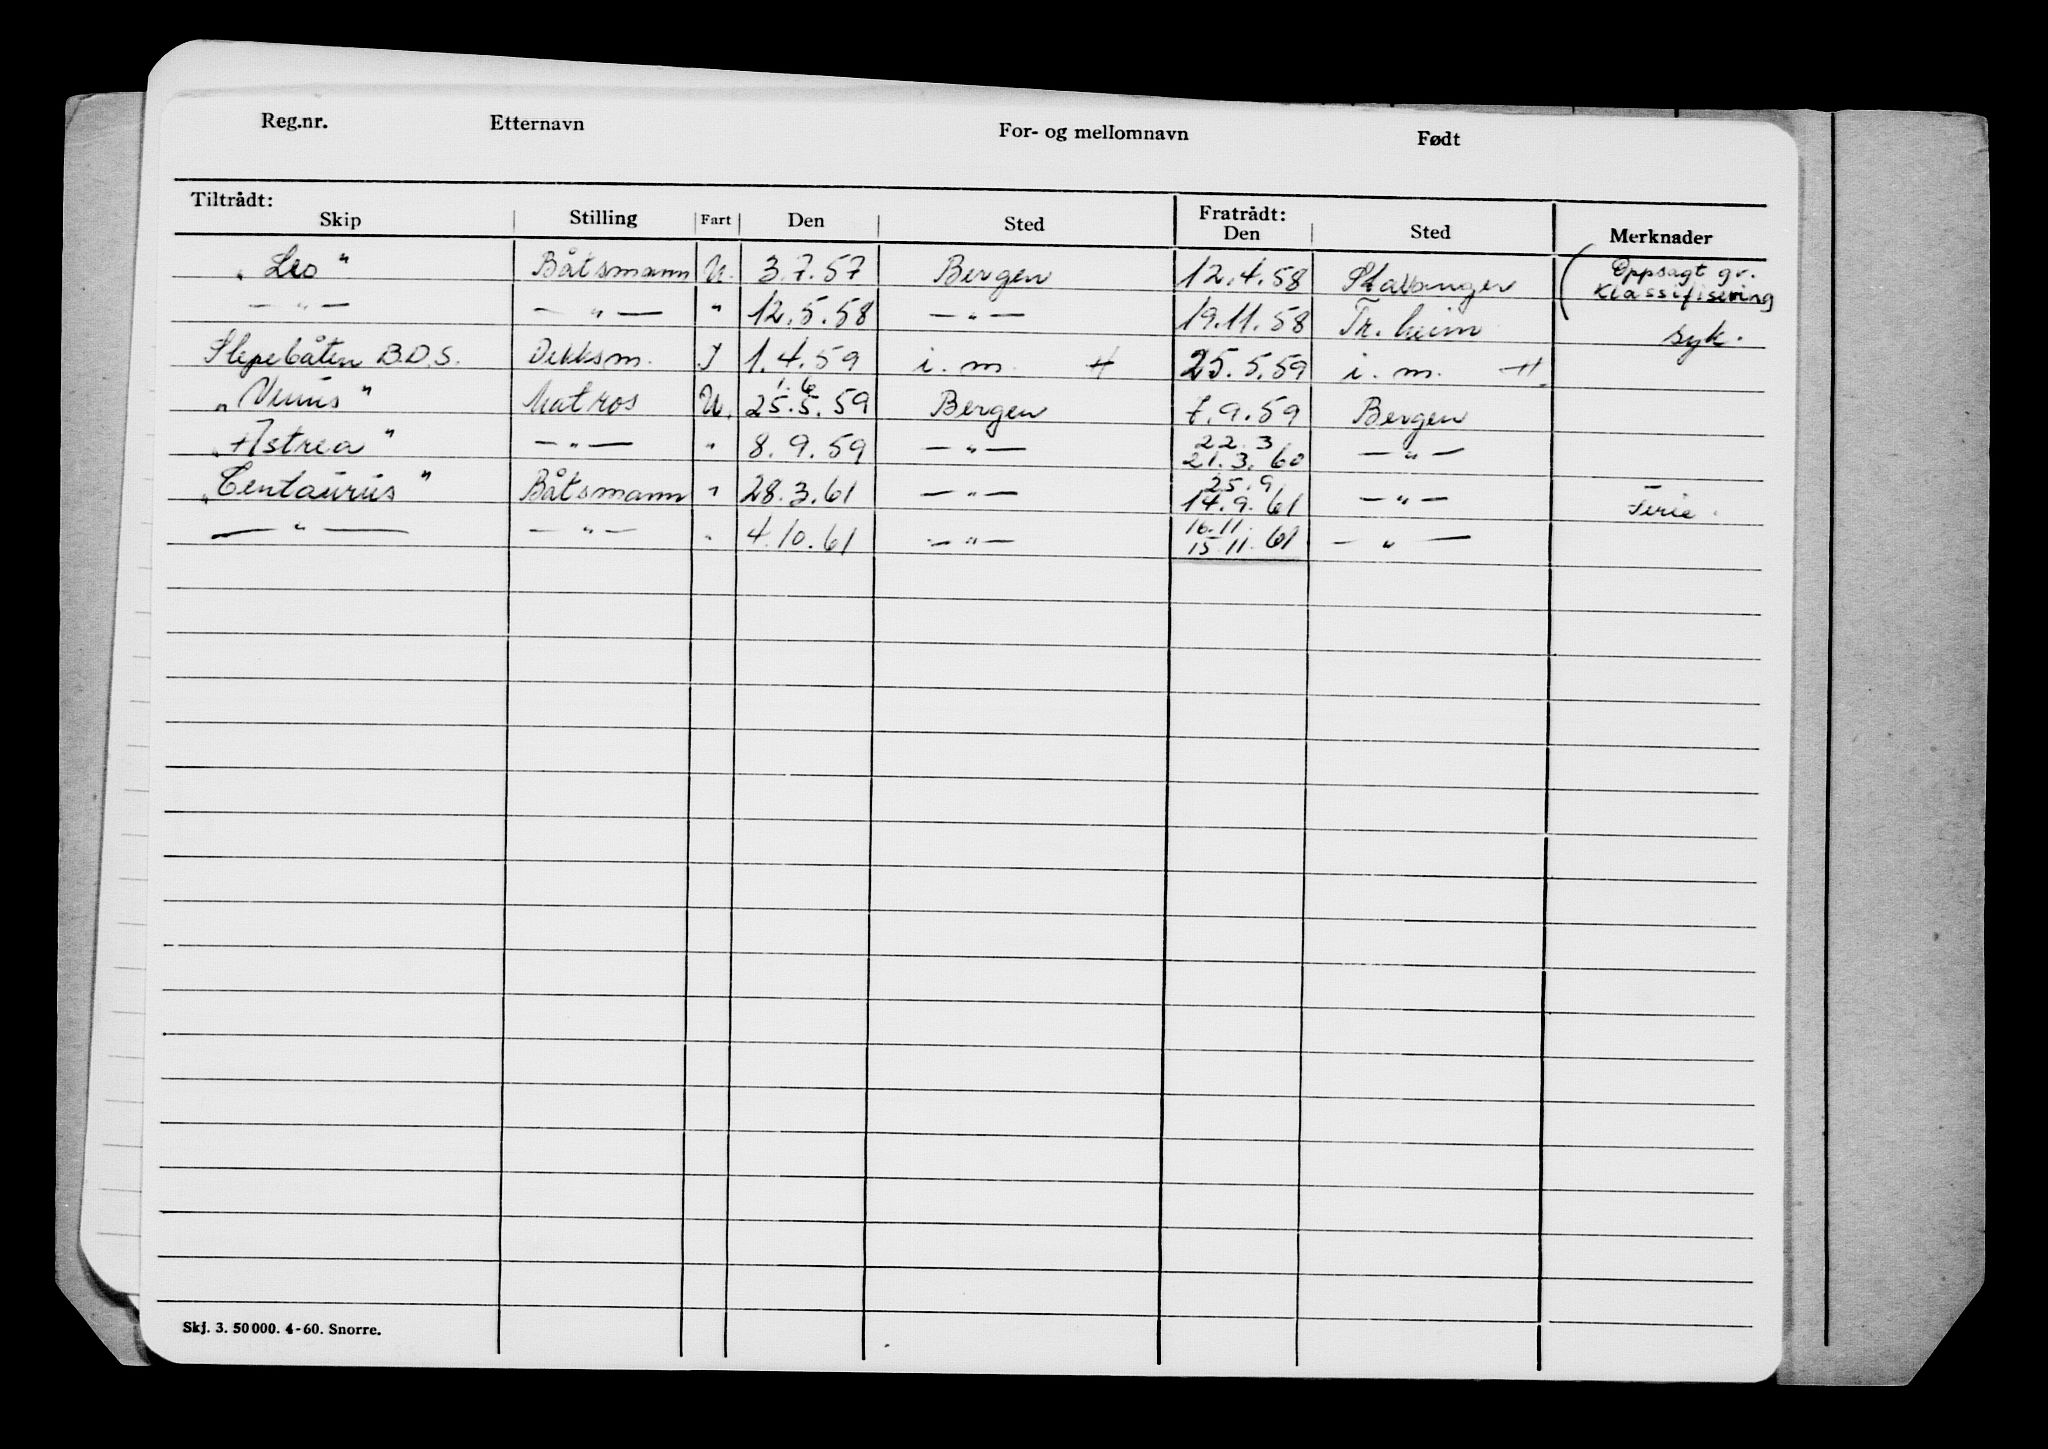 Reg.nr. Etternavn For- og mellomnavn Født
Tiltrådt: Fratrådt:
Skip Stilling Fart Den Sted Den Sted Merknader
„Leo" Båtsmann U. 3.7.57 Bergen 12.4.58 Stavanger (Oppsagt gr.
klassifisering
— " — — " — " 12.5.58 — " — 19.11.58 Tr.heim syk.
Slepebåten B.D.S. Dekksm. I 1.4.59 i. m. H 25.5.59 i. m. H
1.6
„Venus" Matros U. 25.5.59 Bergen 7.9.59 Bergen
22.3
„Astrea" — " — " 8.9.59 — " — 21.3.60 — " —
25.9
„Centaurus" Båtsmann " 28.3.61 — " — 14.9.61 — " — Ferie.
16.11.
— " — — " — " 4.10.61 — " — 15.11.61 — " —
Skj. 3. 50 000. 4-60. Snorre.